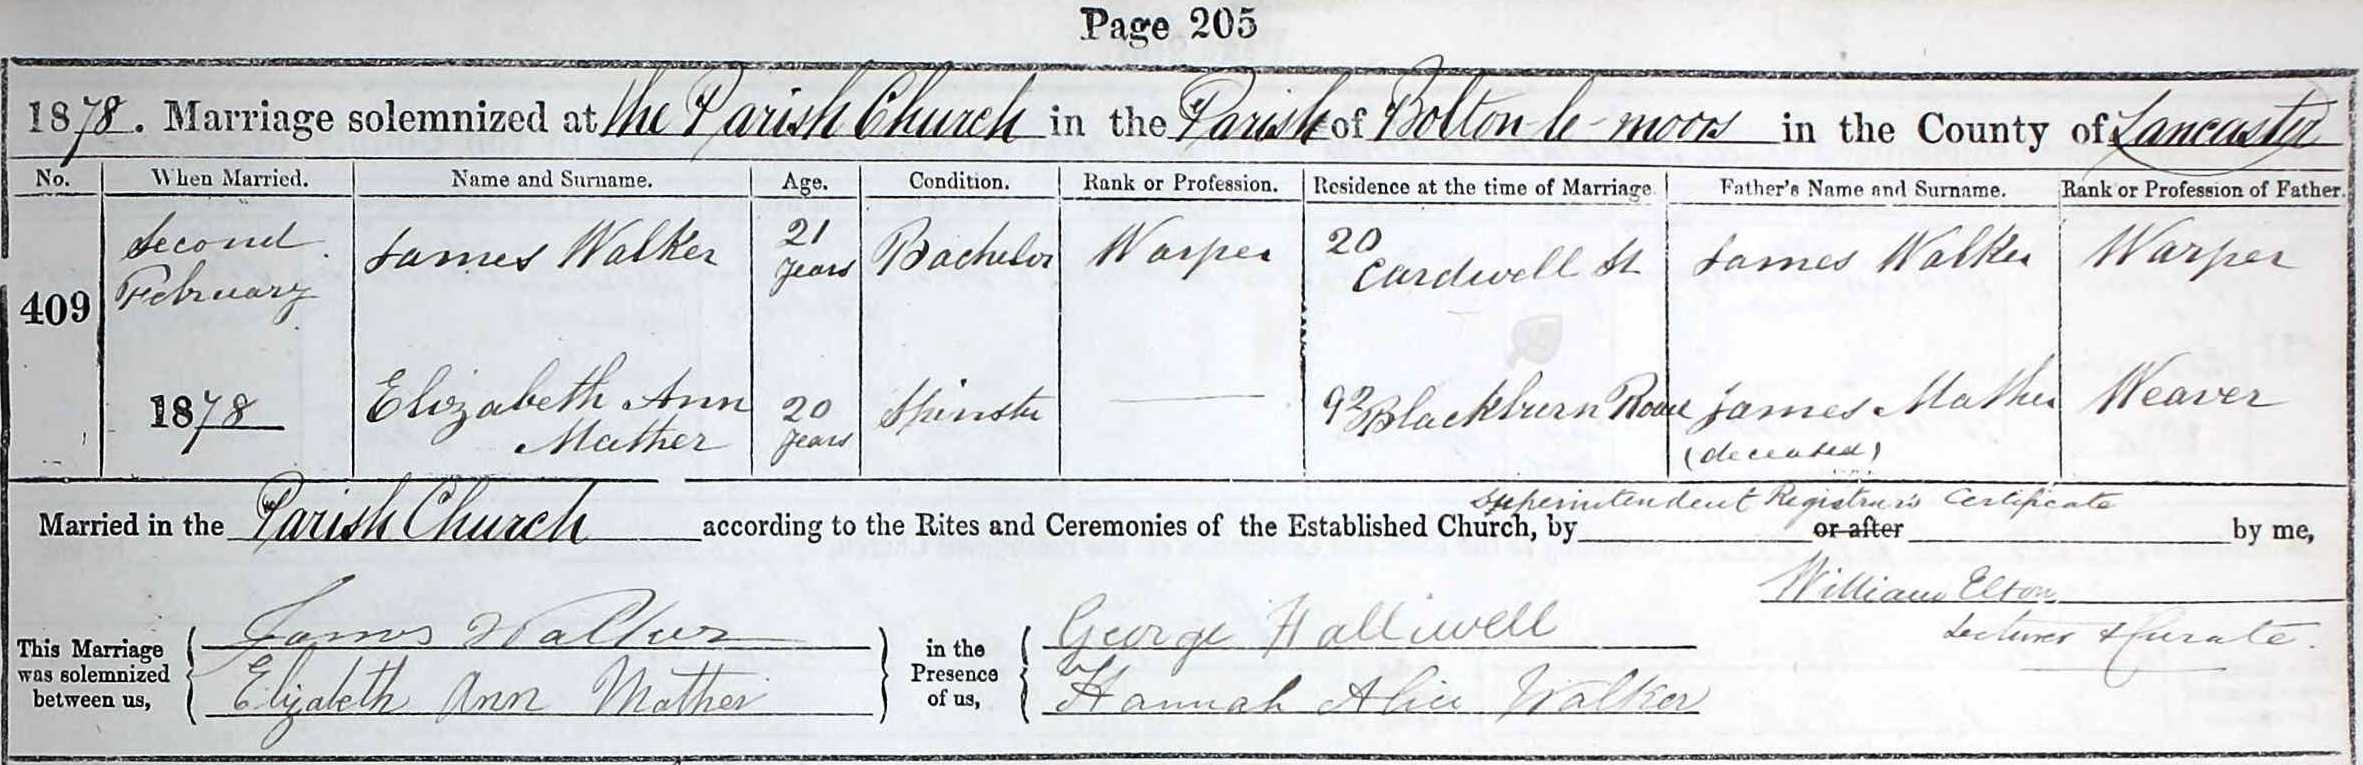 Page 205
1878. Marriage solemnized at the Parish Church in the Parish of Bolton-le-moors in the County of Lancaster
No. When Married. Name and Surname. Age. Condition. Rank or Profession. Residence at the time of Marriage. Father's Name and Surname. Rank or Profession of Father.
409
Second February 1878
James Walker 21 years Bachelor Warper 20 Cardwell St James Walker Warper
Elizabeth Ann Mather 20 years Spinster — 92 Blackburn Road James Mather (deceased) Weaver
Superintendent Registrar's Certificate
Married in the Parish Church according to the Rites and Ceremonies of the Established Church, by or after by me,
William Elton
Lecturer & Curate.
This Marriage was solemnized between us, James Walker Elizabeth Ann Mather
in the Presence of us, George Halliwell Hannah Alice Walker